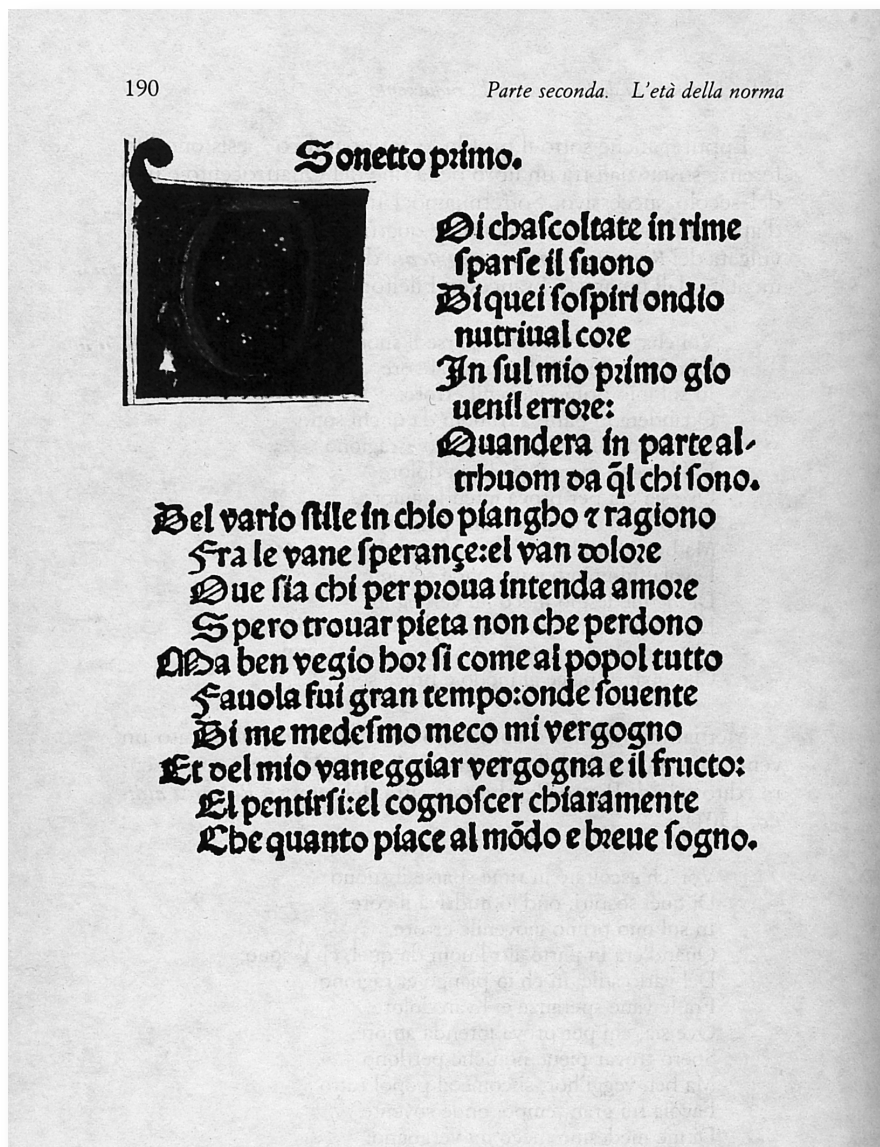 190
Parte seconda. L'età della norma
Sonetto primo.
Oi chaſcoltate in rime
ſparſe il ſuono
Di quei ſoſpiri ondio
nutriual core
In ſul mio primo gio
uenil errore:
Quandera in parte al-
trhuom da q̄l chi ſono.
Del vario ſtile in chio piangho ⁊ ragiono
Fra le vane ſperançe:el van dolore
Oue ſia chi per proua intenda amore
Spero trouar pieta non che perdono
Ma ben vegio hor ſi come al popol tutto
Fauola fui gran tempo:onde ſouente
Di me medeſmo meco mi vergogno
Et del mio vaneggiar vergogna e il fructo:
El pentirſi:el cognoſcer chiaramente
Che quanto piace al mōdo e breue ſogno.